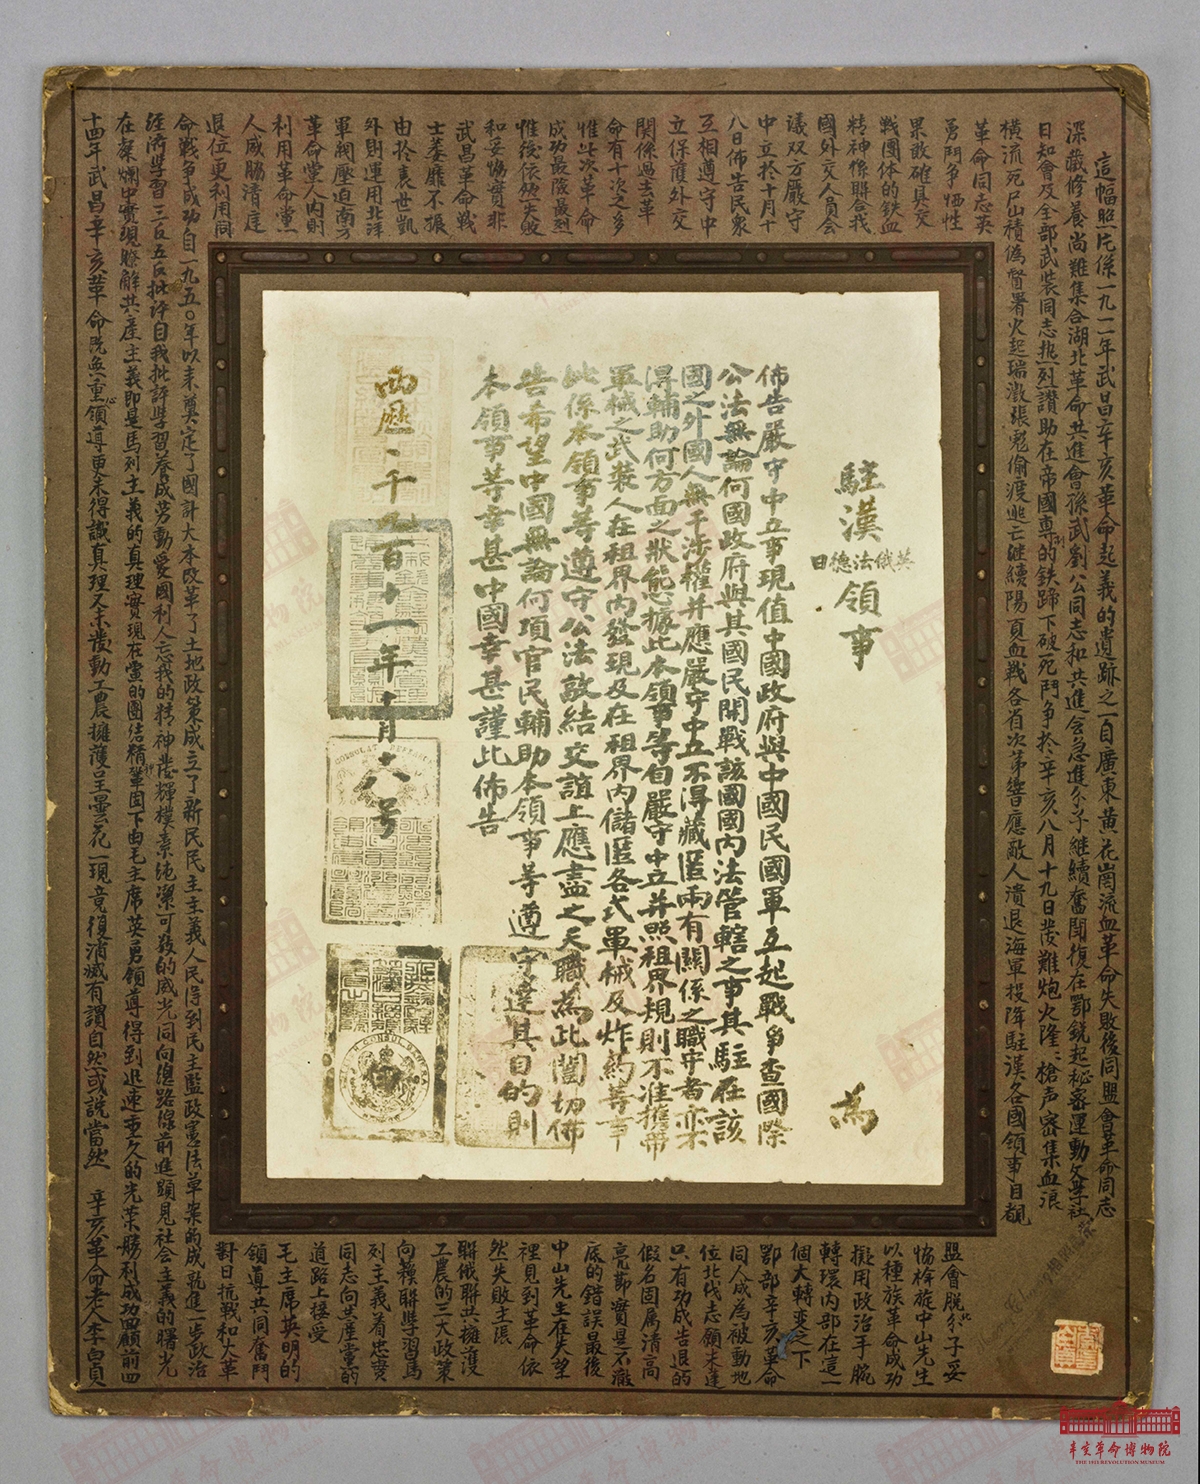 駐漢英俄法德日領事　為
佈告嚴守中立事現值中國政府與中國民國軍互起戰爭查國際
公法無論何國政府與其國民開戰該國國內法管轄之事其駐在該
國之外國人無干涉權并應嚴守中立不得藏匿兩有關係之職守者亦不
得輔助何方面之狀態據此本領事等自嚴守中立并照租界規則不准攜帶
軍械之武裝人在租界內發現及在租界內儲匿各式軍械及炸药等事
此係本領事等遵守公法敦結交誼上應盡之天職為此闔切佈
告希望中國無論何項官民輔助本領事等遵守達其目的則
本領事等幸甚中國幸甚謹此佈告
西歷一千九百十一年十月十八号
這幅照片係一九一一年武昌辛亥革命起義的遺跡之一自廣東黃花崗流血革命失敗後同盟會革命同志
深藏修養尚難集合湖北革命共進會孫武劉公同志和共進會急進分子继續奮鬪復在鄂銳起秘密運動文學社
日知會及全部武裝同志热烈讚助在帝國專制的鉄蹄下破死鬥争於辛亥八月十九日發難炮火隆隆槍声密集血浪
橫流死尸山積偽督署火起瑞澂張彪偷渡逃亡继續陽夏血戰各省次第響應敵人潰退海軍投降駐漢各國領事目覩
革命同志英
勇鬥争牺牲
果敢確具交
戰團体的鉄血
精神係聯合我
國外交人員会
議双方嚴守
中立於十月十
八日佈告民衆
互相遵守中
立保護外交
関係過去革
命有十次之多
惟此次革命
成功最後最烈
惟後依然失敗
和妥協實非
武昌革命戰
士萎靡不振
由於袁世凱
外則運用北洋
軍閥壓迫南方
革命黨人內則
利用革命黨
人威脇清廷
退位更利用同
盟會脱党分子妥
協捧旋中山先生
以種族革命成功
擬用政治手腕
轉環內部在這一
個大轉变之下
鄂部辛亥革命
同人成為被動地
位北伐志願未達
只有功成告退的
假名固属清高
亮節實是不澈
底的錯誤最後
中山先生在失望
裡見到革命依
然失敗主張
聯俄聯共擁護
工農的三大政策
向蘇聯學習馬
列主義着忠實
同志向共產黨的
道路上接受
毛主席英明的
領導共同奮鬥
對日抗戰和大革
命戰争成功自一九五〇年以来奠定了國計大本改革了土地政策成立了新民民主主義人民得到民主監政憲法草案的成就進一步政治
經濟學習三反五反批評自我批評學習養成劳動愛國利人忘我的精神發輝樸素纯潔可敬的威光同向總路線前進顕見社会主義的曙光
在粲爛中實現瞭解共產主義即是馬列主義的真理實現在黨的團结精神鞏固下由毛主席英勇領導得到迅速重大的光荣勝利成功回顧前四
十四年武昌辛亥革命既無重心領導更未得識真理人未發動工農擁護呈曇花一現竟復消滅有謂自然或説當然　辛亥革命老人李白貞
辛亥革命博物院
THE 1911 REVOLUTION MUSEUM